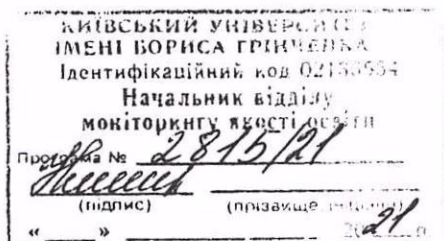 КИЇВСЬКИЙ УНІВЕРСИТЕТ
ІМЕНІ БОРИСА ГРІНЧЕНКА
Ідентифікаційний код 02136554
Начальник відділу
моніторингу якості освіти
Програма № 2815/21
(підпис) (прізвище, ініціали)
« » 2021 р.